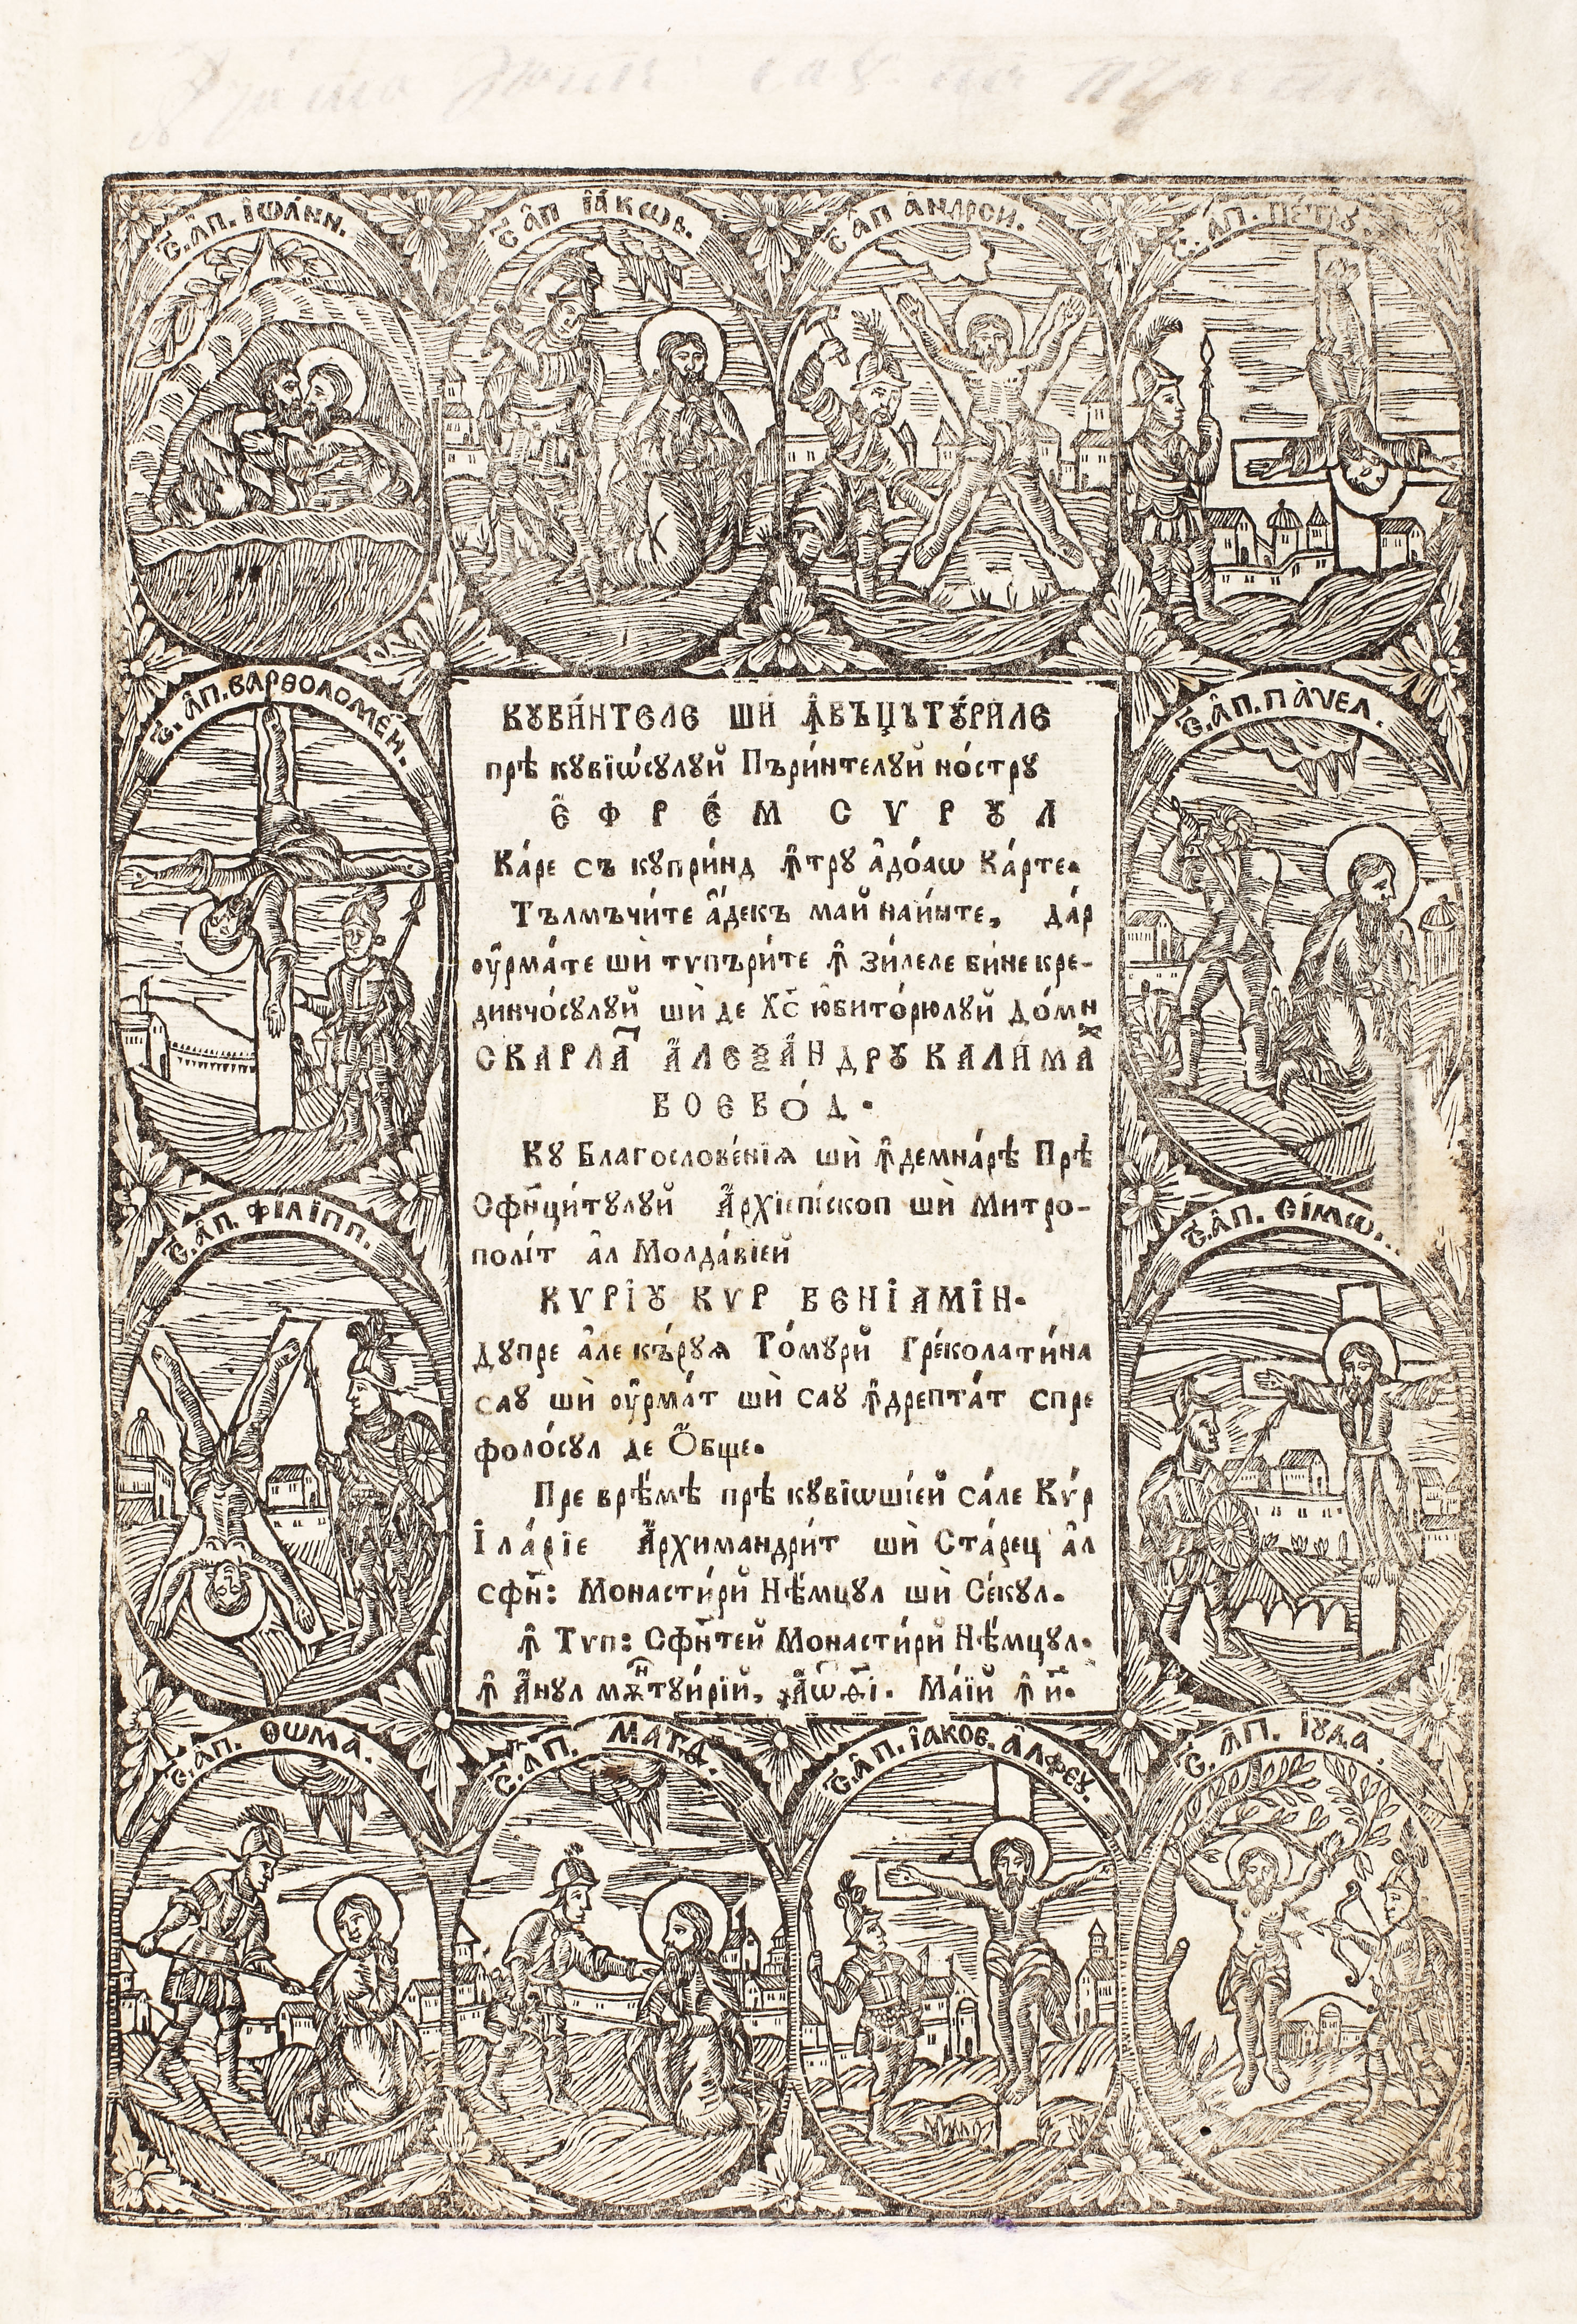 С҃. А҆П. ІѠА́НН.
С҃ А҆П ІА́КѠВ.
С҃ А҆П АНДРОИ.
С҃. А҆П. ПЕТРꙋ.
С҃. А҆П. ВАРѲОЛОМЕ́Й.
С҃. А҆П. ПА́VЕЛ.
КꙋВИ́НТЕЛЕ ШЍ Ꙟ҆ВЪЦЪТꙋ́РИЛЕ
прѣ кꙋвїѡ́сꙋлꙋй Пъри́нтелꙋй но́стрꙋ
Е҆ Ф Р Е́ М С V Р Ꙋ Л
Ка́ре съ кꙋпри́нд Ꙟ҆трꙋ а҆до́аѡ Ка́рте.
Тълмъчи́те а҆́декъ май наи́нте, да́р
ᲂу҆рма́те шѝ тvпъри́те Ꙟ҆ зи́леле бине кре-
динчо́сꙋлꙋй шѝ де Хс҃ ю҆бито́рюлꙋй До́мн
СКАРЛАТ А҆ЛЕѮА́НДРꙋ КАЛИ́МАХ
ВОЕВО́Д.
Кꙋ Благослове́нїѧ шѝ Ꙟ҆демна́рѣ Прѣ
Сфн҃ци́тꙋлꙋй А҆рхїепі́скоп шѝ Митро-
полі́т а҆л Молда́вїей
КVРІꙋ КVР ВЕНІАМІ́Н.
Дꙋпре а҆ле къ́рꙋѧ То́мꙋрй Гре́колати́на
саꙋ шѝ ᲂу҆рма́т шѝ саꙋ Ꙟ҆дрепта́т спре
фоло́сꙋл де Ѻ҆́бще.
Пре врѣ́мѣ прѣ кꙋвїѡшїе́й са́ле Кv́р
Іла́рїе А҆рхимандри́т шѝ Ста́рец а҆л
сфн҃: Монасти́рй Нѣ́мцꙋл шѝ Се́кꙋл.
Ꙟ҆ Тvп: Сфн҃тей Монасти́рй Нѣ́мцꙋл.
Ꙟ҆ А҆́нꙋл мѫнтꙋи́рїй, ҂аѡ҃ѳі. Ма́їй Ꙟ҆ и҃.
С҃. А҆П. ФІЛІ́ПП.
С҃. А҆П. СІ́МѠ..
С҃. А҆П. ѲѠМА̀.
С҃. А҆П. МАТД.
С҃. А҆П. ІА́КОВ. А҆ЛФЕꙋ.
С҃. А҆П. ІꙋДА.